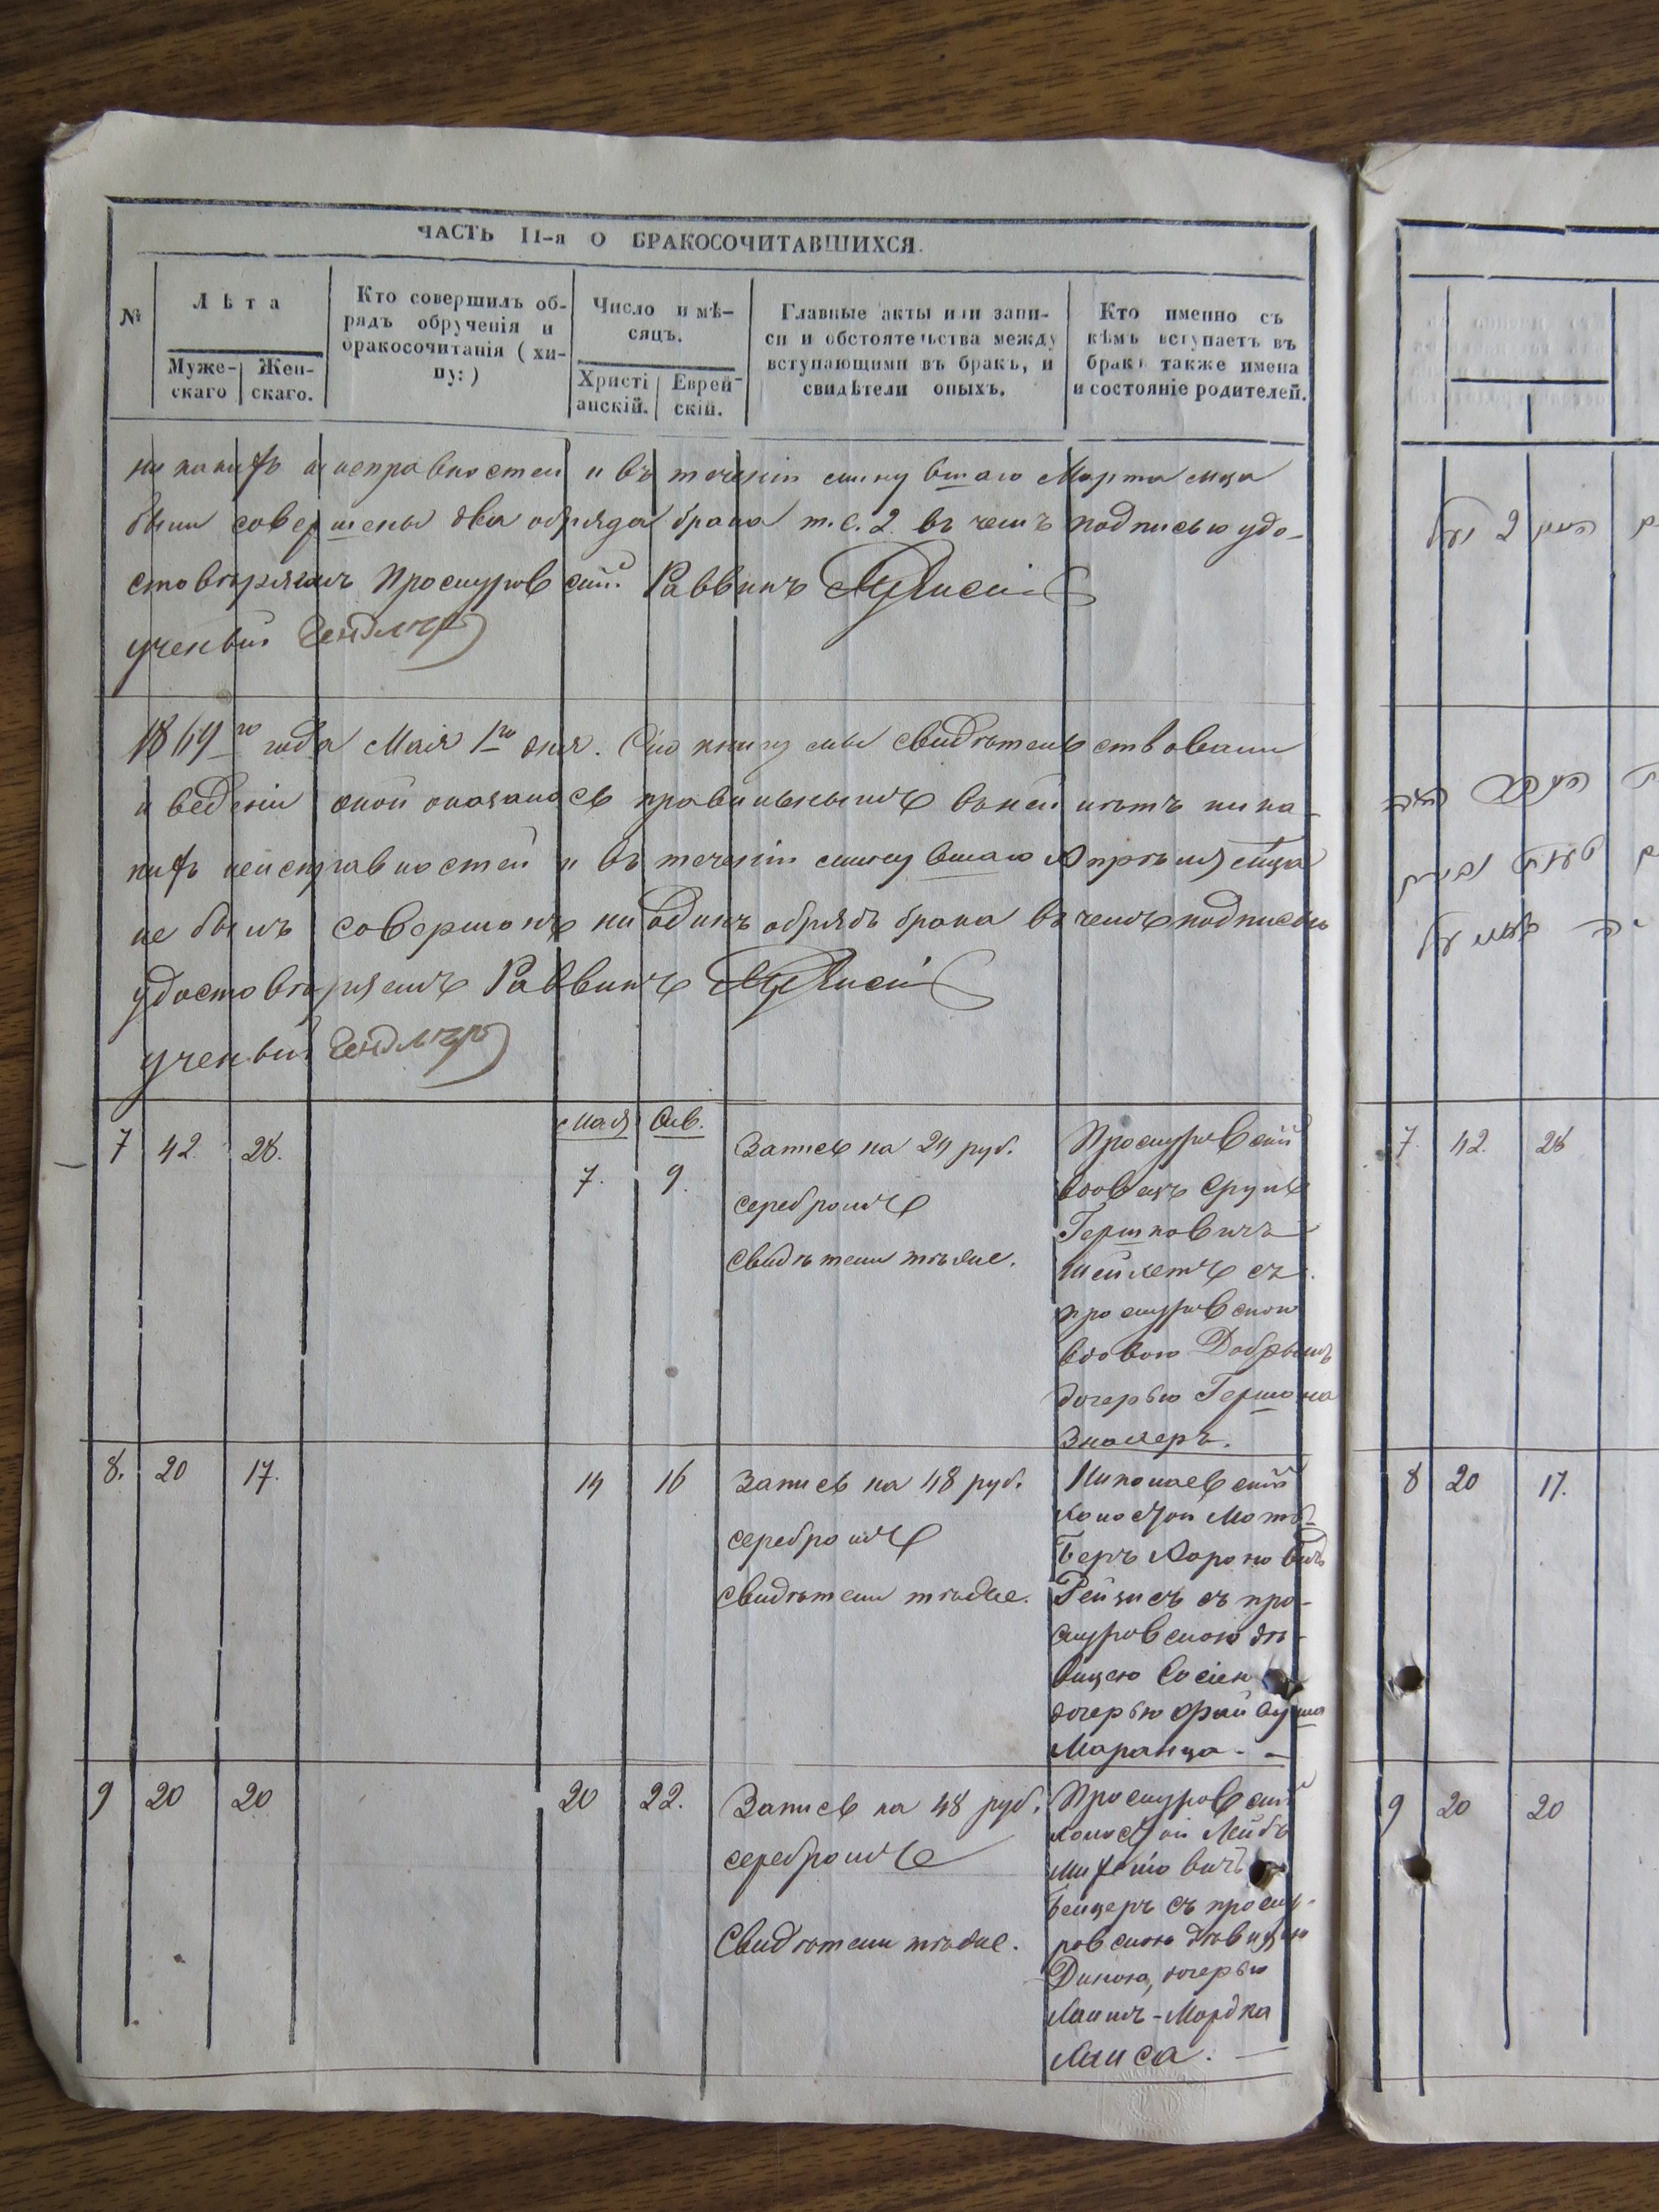 ЧАСТЬ II-я О БРАКОСОЧИТАВШИХСЯ.
№
Лѣта
Муже-
скаго
Жен-
скаго.
Кто совершилъ об-
рядъ обрученія и
бракосочитанія (хи-
пу:)
Число и мѣ-
сяцъ.
Христі
анскій.
Еврей-
скій.
Главные акты или запи-
си и обстоятельства между
вступающими въ бракъ, и
свидѣтели оныхъ.
Кто именно съ
кѣмъ вступаетъ въ
бракъ также имена
и состояніе родителей.
никакихъ неисправностей и въ теченіи минувшаго Марта мца
были совершены два обряда брака т.е. 2 въ чемъ подписью удо-
стовѣряемъ Проскуровскій Раввинъ
ученый
1869го года Мая 1го дня. Сію книгу мы свидѣтельствовали
и веденіи оной оказалось правильнымъ въ ней нѣтъ ника-
кихъ неисправностей и въ теченіи минувшаго Апрѣля мѣца
не былъ совершонъ ни одинъ обрядъ брака въ чемъ подписью
удостовѣряемъ Раввинъ
ученый
Мая Сив.
7 42 28. 7. 9.
Запись на 24 руб.
серебромъ
Свидѣтели тѣже.
Проскуровскій
вдовецъ Сруль
Гершковичъ
Шейлетъ съ
проскуровскою
вдовою Добрышъ
дочерью Гершона
8. 20 17. 14 16
Запись на 48 руб.
серебромъ
Свидѣтели тѣже.
Николаевскій
холостой
Беръ Ароновичъ
Рейзисъ съ про-
скуровскою дѣ-
вицею Сосіею
дочерью Файвуша
Маранца. -
9 20 20 20 22.
Запись на 48 руб.
серебромъ
Свидѣтели тѣже.
Проскуровскій
холостой Лейбъ
съ проску-
ровскою дѣвицею
Диною, дочерью
Хаимъ-Мордка
7. 42. 28
8 20 17.
9 20 20